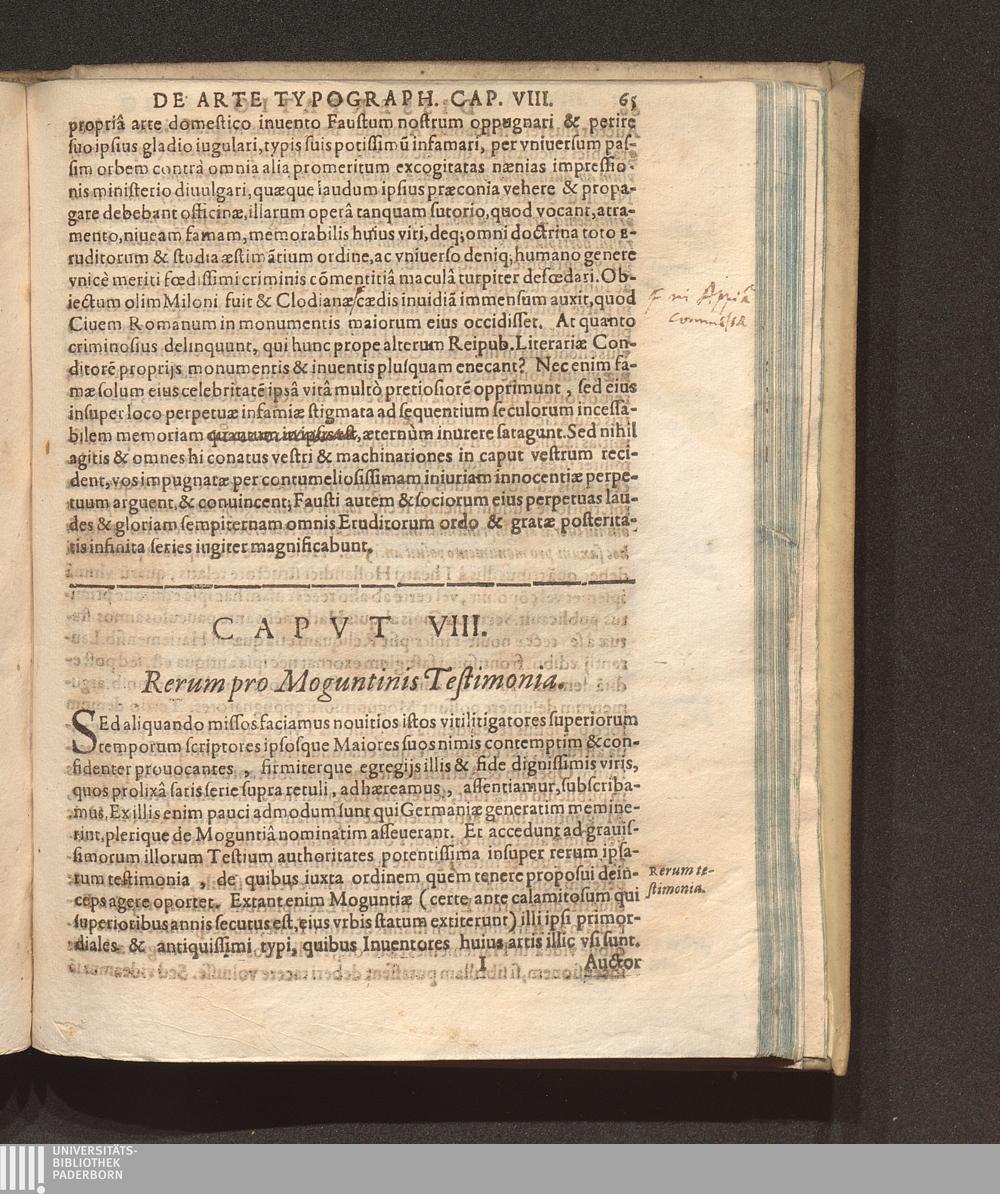 DE ARTE TYPOGRAPH. CAP. VIII. 65
propriâ arte domeſtico inuento Fauſtum noſtrum oppugnari & perire
ſuo ipſius gladio iugulari, typis ſuis potiſſimū infamari, per vniuerſum paſ-
ſim orbem contrà omnia alia promeritum excogitatas nænias impreſſio-
nis miniſterio diuulgari, quæque laudum ipſius præconia vehere & propa-
gare debebant officinæ, illarum operâ tanquam ſutorio, quod vocant, atra-
mento, niueam famam, memorabilis huius viri, deq; omni doctrina toto e-
ruditorum & ſtudia æſtimātium ordine, ac vniuerſo deniq; humano genere
vnicè meriti fœdiſſimi criminis cōmentitiâ maculâ turpiter defœdari. Ob-
iectum olim Miloni fuit & Clodianæ cædis inuidiā immenſum auxit, quod
Ciuem Romanum in monumentis maiorum eius occidiſſet. At quanto
criminoſius delinquunt, qui hunc prope alterum Reipub. Literariæ Con-
ditorē proprijs monumentis & inuentis pluſquam enecant? Nec enim fa-
mæ ſolum eius celebritatē ipſâ vitâ multò pretioſiorē opprimunt, ſed eius
inſuper loco perpetuæ infamiæ ſtigmata ad ſequentium ſeculorum inceſſa-
bilem memoriam quantum in ipſis eſt, æternùm inurere ſatagunt. Sed nihil
agitis & omnes hi conatus veſtri & machinationes in caput veſtrum reci-
dent, vos impugnatæ per contumelioſiſſimam iniuriam innocentiæ perpe-
tuum arguent, & conuincent; Fauſti autem & ſociorum eius perpetuas lau-
des & gloriam ſempiternam omnis Eruditorum ordo & gratæ poſterita-
tis infinita ſeries iugiter magnificabunt.
in Appiâ
commiſſa
CAPVT VIII.
Rerum pro Moguntinis Teſtimonia.
SEd aliquando miſſos faciamus nouitios iſtos vitilitigatores ſuperiorum
temporum ſcriptores ipſoſque Maiores ſuos nimis contemptim & con-
fidenter prouocantes, firmiterque egregijs illis & fide digniſſimis viris,
quos prolixâ ſatis ſerie ſupra retuli, adhæreamus, aſſentiamur, ſubſcriba-
mus. Ex illis enim pauci admodum ſunt qui Germaniæ generatim memine-
rint, plerique de Moguntiâ nominatim aſſeuerant. Et accedunt ad grauiſ-
ſimorum illorum Teſtium authoritates potentiſſima inſuper rerum ipſa-
rum teſtimonia, de quibus iuxta ordinem quem tenere propoſui dein-
ceps agere oportet. Extant enim Moguntiæ (certe ante calamitoſum qui
ſuperioribus annis ſecutus eſt, eius vrbis ſtatum extiterunt) illi ipſi primor-
diales & antiquiſſimi typi, quibus Inuentores huius artis illic vſi ſunt.
Rerum te-
ſtimonia.
I Auctor
UNIVERSITÄTS-
BIBLIOTHEK
PADERBORN